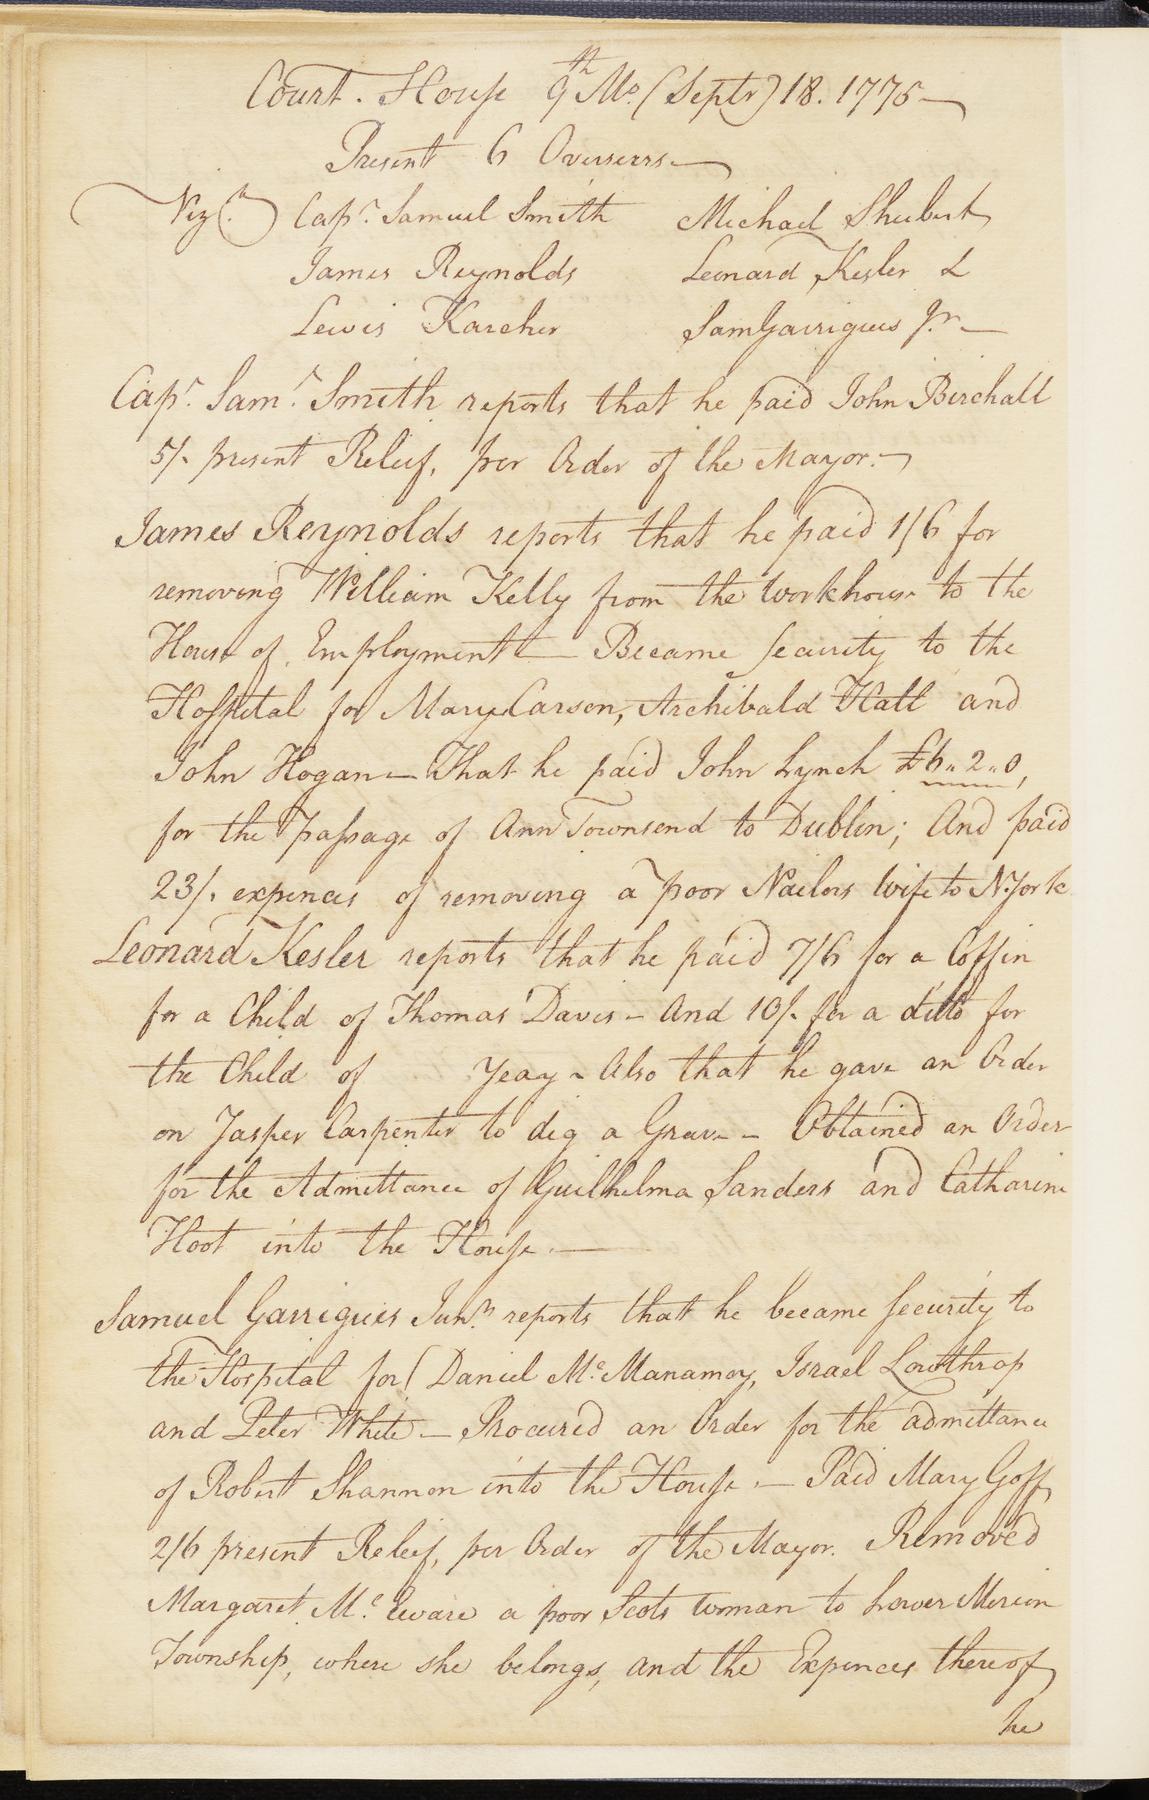 Court House 9th Mo. (Septr) 18. 1775
Present 6 Overseers
Vizt. Capn. Samuel Smith Michael Shubert
James Reynolds Leonard Kesler &
Lewis Karcher Sam Garrigues Jr.
Capn. Saml. Smith reports that he paid John Birchall
5/. present Releif, per Order of the Mayor.
James Reynolds reports that he paid 1/6 for
removing William Kelly from the Workhouse to the
House of Employment — Became Security to the
Hospital for Mary Carson, Archibald Hall and
John Hogan — That he paid John Lynch £6.. 2.. 0,
for the Passage of Ann Townsend to Dublin; And paid
23/. expences of removing a poor Nailors Wife to N. York
Leonard Kesler reports that he paid 7/6 for a Coffin
for a Child of Thomas Davis - And 10/. for a ditto for
the Child of Yeay - Also that he gave an Order
on Jasper Carpenter to dig a Grave - Obtained an Order
for the Admittance of Guilhelma Sanders and Catharine
Hoot into the House. —
Samuel Garrigues Junr. reports that he became Security to
the Hospital for Daniel Mc. Manamoy, Israel Lowthrop
and Peter White — Procured an Order for the admittance
of Robert Shannon into the House. — Paid Mary Goff
2/6 present Releif, per Order of the Mayor. Removed
Margaret Mc. Eware a poor Scots Woman to Lower Merion
Township, where she belongs, and the Expences thereof
he